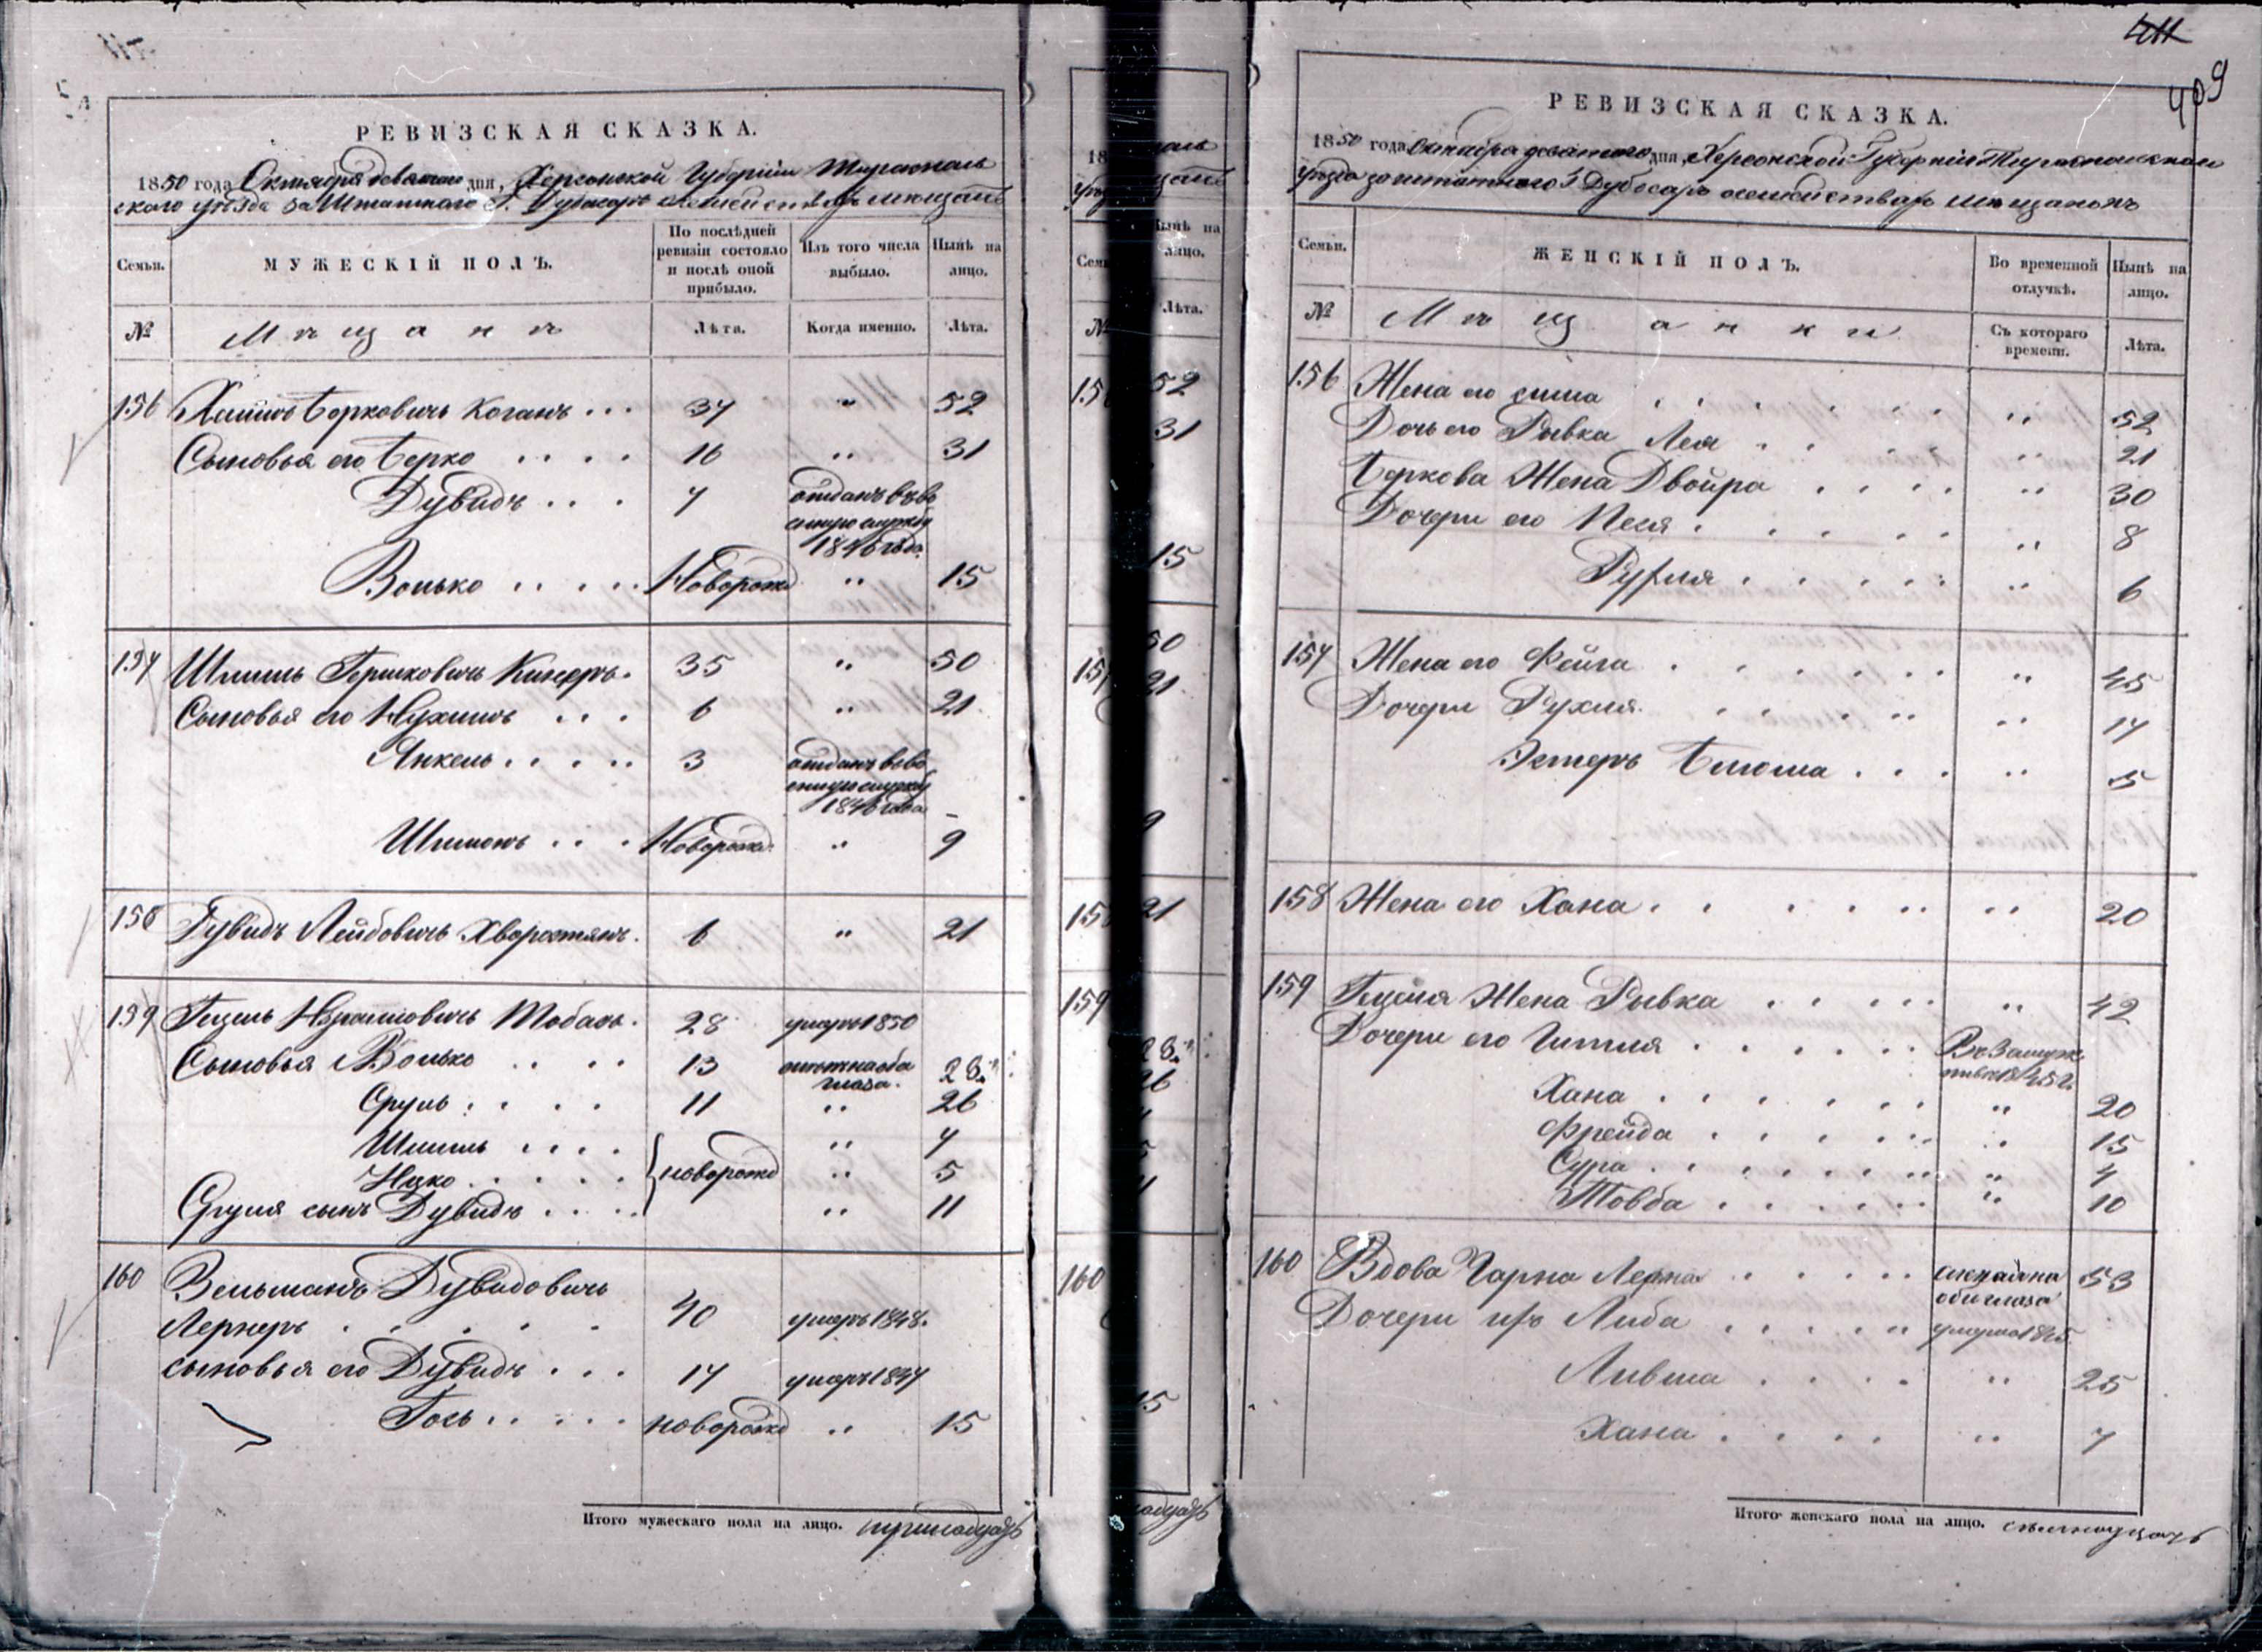 411
409
РЕВИЗСКАЯ СКАЗКА.
1850 года Октября девятаго дня, Херсонской Губерніи Тирасполь
скаго уѣзда заштатного г. Дубосаръ о семействахъ мещанъ
Семьи.
МУЖЕСКІЙ ПОЛЪ.
По послѣдней ревизіи состояло и послѣ оной прибыло.
Изъ того числа выбыло.
Нынѣ на лицо.
№
Мѣщане
Лѣта.
Когда именно.
Лѣта.
156 Хаимъ Берковичъ Коганъ ... 37 " 52
Сыновья его Берко .... 16 " 31
Дувидъ ... 7 отданъ въ во
енную службу
1846 года
Волько ..... Новорожд " 15
157 Шмиль Гершковичъ Кинеръ. 35 " 50
Сыновья его Нухимъ ... 6 " 21
Янкель ..... 3 отданъ въ во
енную службу
1846 года -
Шимонъ ... Новорожд. " 9
158 Дувидъ Лейбовичъ Хворостянъ. 6 " 21
159 Гецель Мобасъ. 28 умеръ 1850
Сыновья Волько .... 13 оба
глаза. 28
Сруль .... 11 " 26
Шмиль .... " 7
Ицко ..... новорожд " 5
Сруля сынъ Дувидъ .... " 11
160 Зельманъ Дувидовичъ
Лернеръ ..... 40 умеръ 1848.
сыновья его Дувидъ ... 14 умеръ 1847
Гось ..... новорожд " 15
Итого мужескаго пола на лицо. тринадцать
РЕВИЗСКАЯ СКАЗКА.
1850 года Октября девятаго дня, Херсонской Губерніи Тираспольскаго
уѣзда заштатного г. Дубосаръ о семействахъ мѣщанокъ
Семьи.
ЖЕНСКІЙ ПОЛЪ.
Во временной отлучкѣ.
Нынѣ на лицо.
№
Мѣщанки
Съ котораго времени.
Лѣта.
156 Жена его Сима " 52
Дочь его Рывка Лея " 21
Беркова Жена Двойра " 30
Дочери его Песя " 8
Рухля " 6
157 Жена его Фейга " 45
Дочери Рухля " 14
Эстеръ Блюма " 5
158 Жена его Хана " 20
159 Гецеля Жена Рывка " 42
Дочери его Гитля Въ Замуж
1845 г.
Хана " 20
Фрейда " 15
Сура " 4
Товба " 10
160 Вдова Чарна Лерна на
оба глаза 53
Дочери ихъ Либа умерла 1845
Ливша " 25
Хана " 7
Итого женскаго пола на лицо. семнадцать